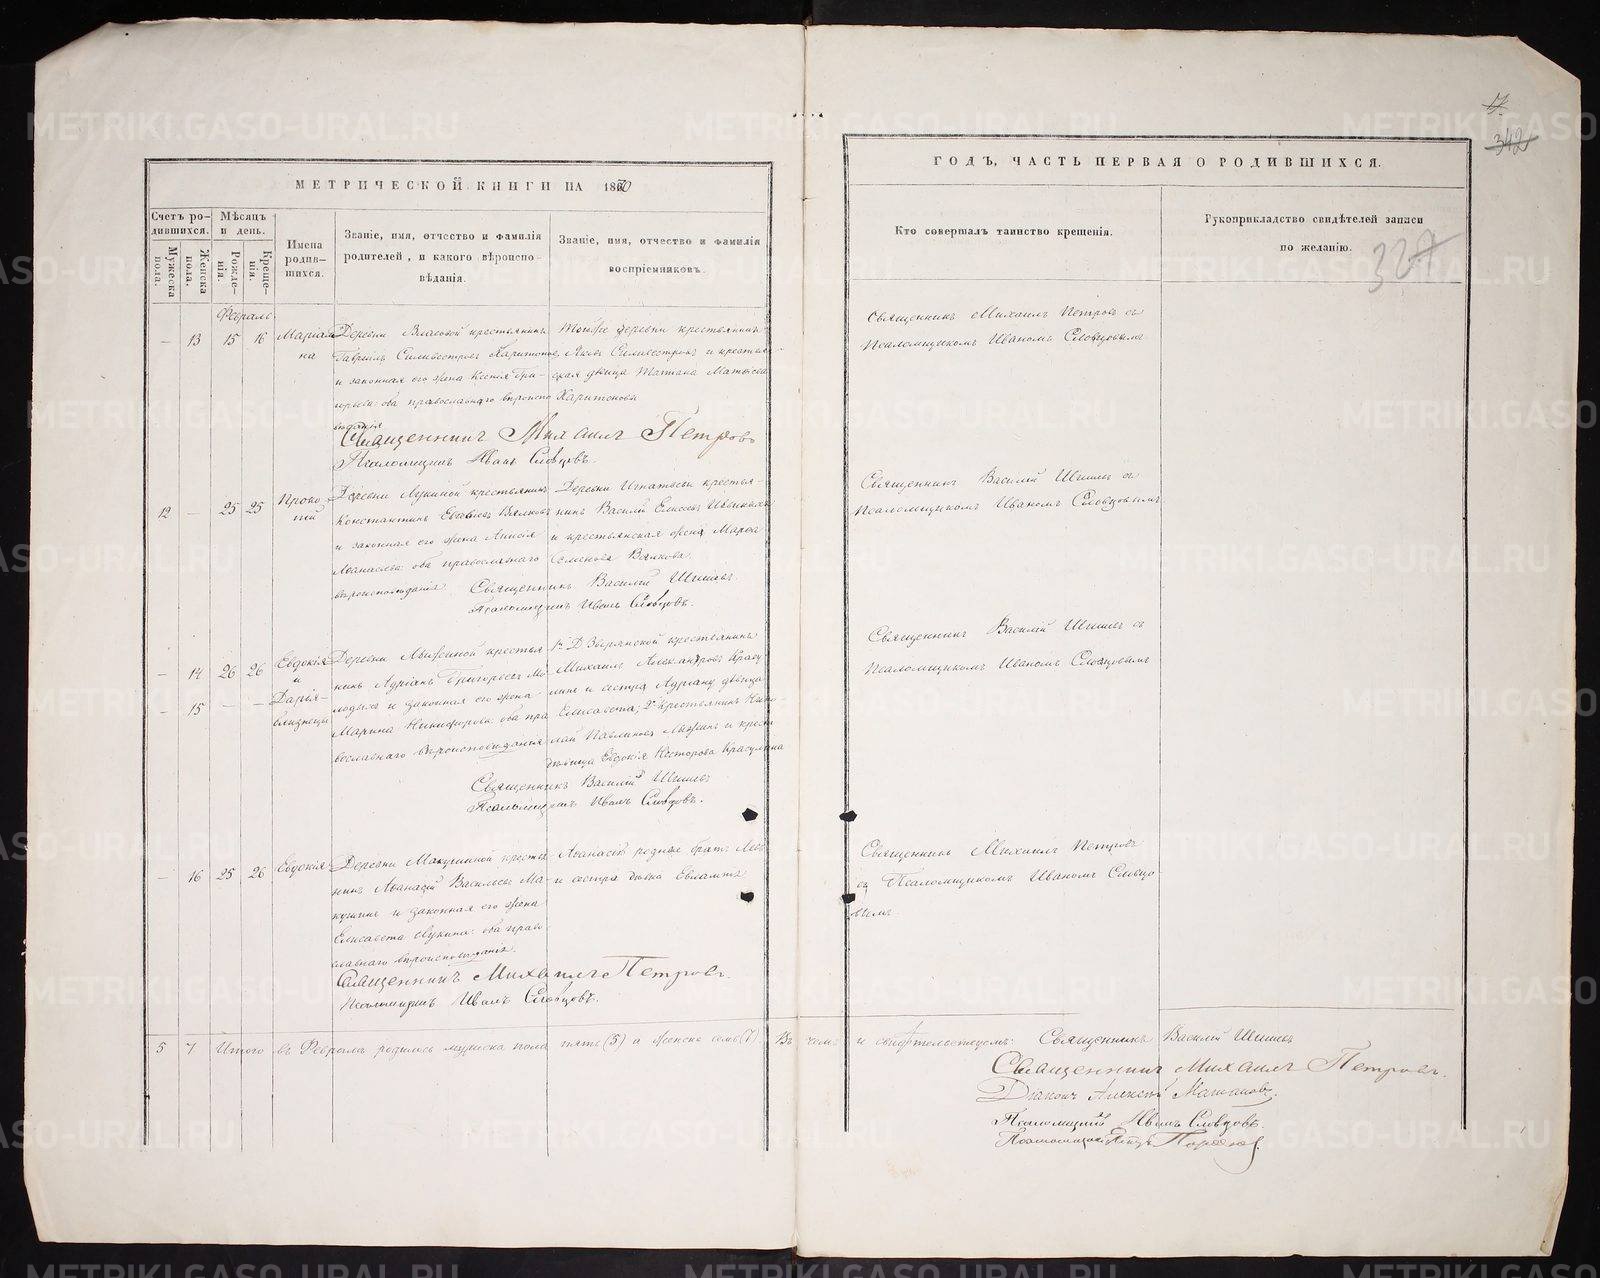 МЕТРИЧЕСКОЙ КНИГИ НА 1870
ГОДЪ, ЧАСТЬ ПЕРВАЯ О РОДИВШИХСЯ.
342
327
Счетъ ро-
дившихся.
Мужеска
пола.
Женска
пола.
Мѣсяцъ
и день.
Рожде-
нія.
Креще-
нія.
Имена
родив-
шихся.
Званіе, имя, отчество и фамилія
родителей, и какого вѣроиспо-
вѣданія.
Званіе, имя, отчество и фамилія
воспріемниковъ.
Кто совершалъ таинство крещенія.
Рукоприкладство свидѣтелей записи
по желанію.
Февраль
— 13 15 16
Маріам
на
Деревни Власовой крестьянинъ
Гавріилъ Силивестровъ Харитоновъ
и законная его жена Ксенія Гри-
горьева: оба православнаго вѣроиспо
вѣданія
Тойже деревни крестьянинъ
Яковъ Силивестровъ и крестьян-
ская дѣвица Татіана Матвѣева
Харитонова
Священникъ Михаилъ Петровъ съ
Псаломщикомъ Иваномъ Словцовымъ
Священникъ Михаилъ Петровъ
Псаломщикъ Иванъ Словцовъ.
12 — 25 25
Проко
пій
Деревни Лукиной крестьянинъ
Константинъ Вялковъ
и законная его жена Анисія
Аѳанасьева: оба православнаго
вѣроисповѣданія
Деревни Игнатьевой крестья-
нинъ Василій Елисеевъ
и крестьянская жена Марѳа
Семенова Вялкова.
Священникъ Василій Шишевъ съ
Псаломщикомъ Иваномъ Словцовымъ
Священникъ Василій Шишевъ.
Псаломщикъ Иванъ Словцовъ.
— 14 26 26
— 15 — —
Евдокія
и
Дарія-
близнецы
Деревни крестья
нинъ Адріанъ Григорьевъ Мо
лодыхъ и законная его жена
Марина Никифорова: оба пра
вославнаго вѣроисповѣданія
1хъ Д. Зырянской крестьянинъ
Михаилъ Александровъ Красу
линъ и сестра Адріану дѣвица
Елисавета; 2. крестьянинъ Нико
лай Павлиновъ и крест.
дѣвица Евдокія Несторова Красулина
Священникъ Василій Шишевъ съ
Псаломщикомъ Иваномъ Словцовымъ
Священникъ Василій Шишевъ
Псаломщикъ Иванъ Словцовъ.
— 16 25 26
Евдокія
Деревни Макушиной крестья
нинъ Аѳанасій Васильевъ Ма-
кушинъ и законная его жена
Елисавета Лукина: оба право
славнаго вѣроисповѣданія.
Аѳанасія родные: братъ
и сестра дѣвка Евлампія
Священникъ Михаилъ Петровъ
съ Псаломщикомъ Иваномъ Словцо-
вымъ
Священникъ Михаилъ Петровъ.
Псаломщикъ Иванъ Словцовъ.
5 7 Итого въ Февралѣ родилось мужеска пола пять (5) а женска семь (7). Въ чемъ и свидѣтельствуемъ: Священникъ Василій Шишевъ
Священникъ Михаилъ Петровъ.
Діаконъ Алексѣй
Псаломщикъ Иванъ Словцовъ.
Псаломщикъ Петръ